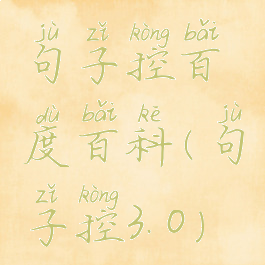 jù zǐ kòng bǎi
句子控百
dù bǎi kē jù
度百科(句
zǐ kòng
子控3.0)